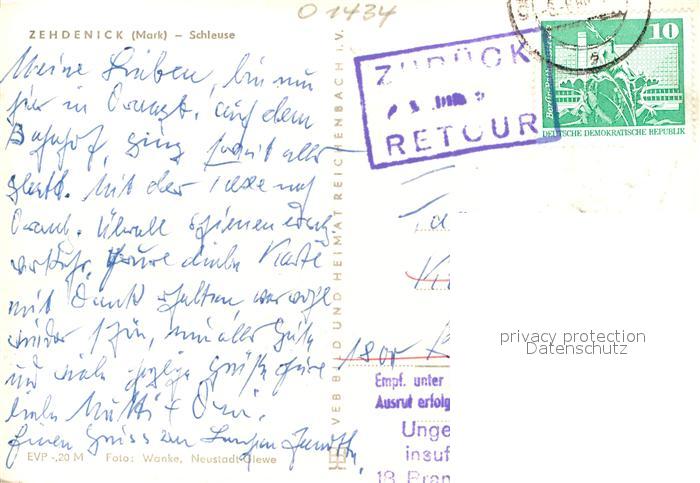 O 1434
ZEHDENICK (Mark) – Schleuse
Meine Lieben, bin nun
hier in Oranbg. auf dem
Bahnhof, ging soweit alles
glatt. Mit der Taxe nach
Oranb. Überall Schienenersatz-
verkehr. Eure liebe Karte
mit Dank erhalten, war wohl
wieder schön, nun alles Gute
und viele Grüße Eure
liebe Mutti + Omi.
einen Gruss zur
EVP -,20 M Foto: Wanke, Neustadt-Glewe
VEB BILD UND HEIMAT REICHENBACH I. V.
ZURÜCK
RETOUR
10
DEUTSCHE DEMOKRATISCHE REPUBLIK
1800
Empf. unter
Ausruf erfolg
Unge
insuf
18 Bran
privacy protection
Datenschutz